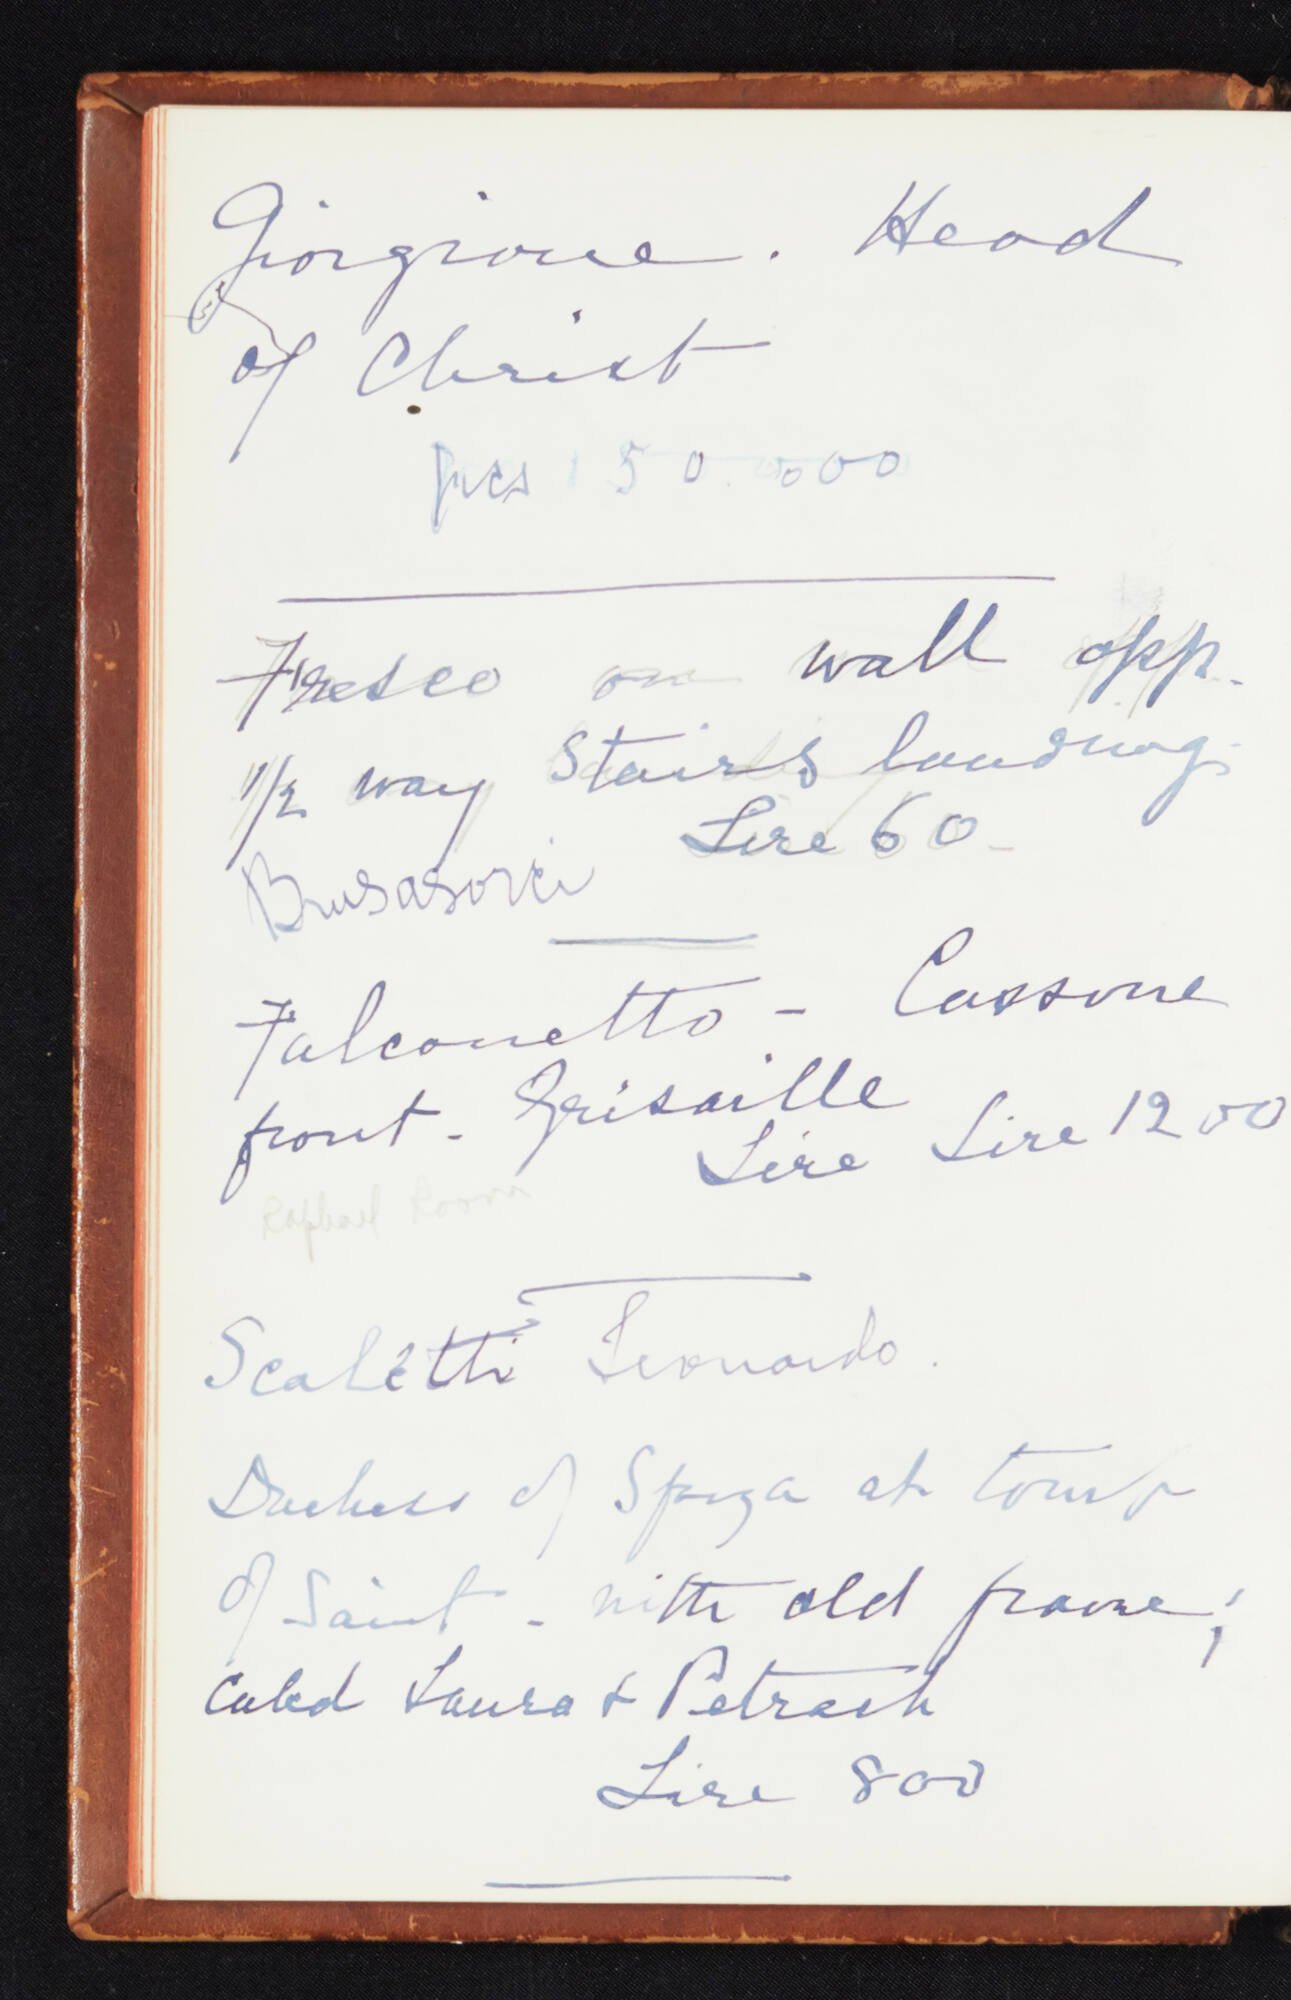 Giorgione. Head
of Christ
frcs 150.000
Fresco on wall opp.
1/2 way stairs landing.
Lire 60-
Brusasorci
Falconetto - Cassone
front - Grisaille
Lire Lire 1200
Raphael Room
Scaletti Leonardo.
Duchess of at tomb
of Saint - with old frame;
called Laura & Petrach
Lire 800